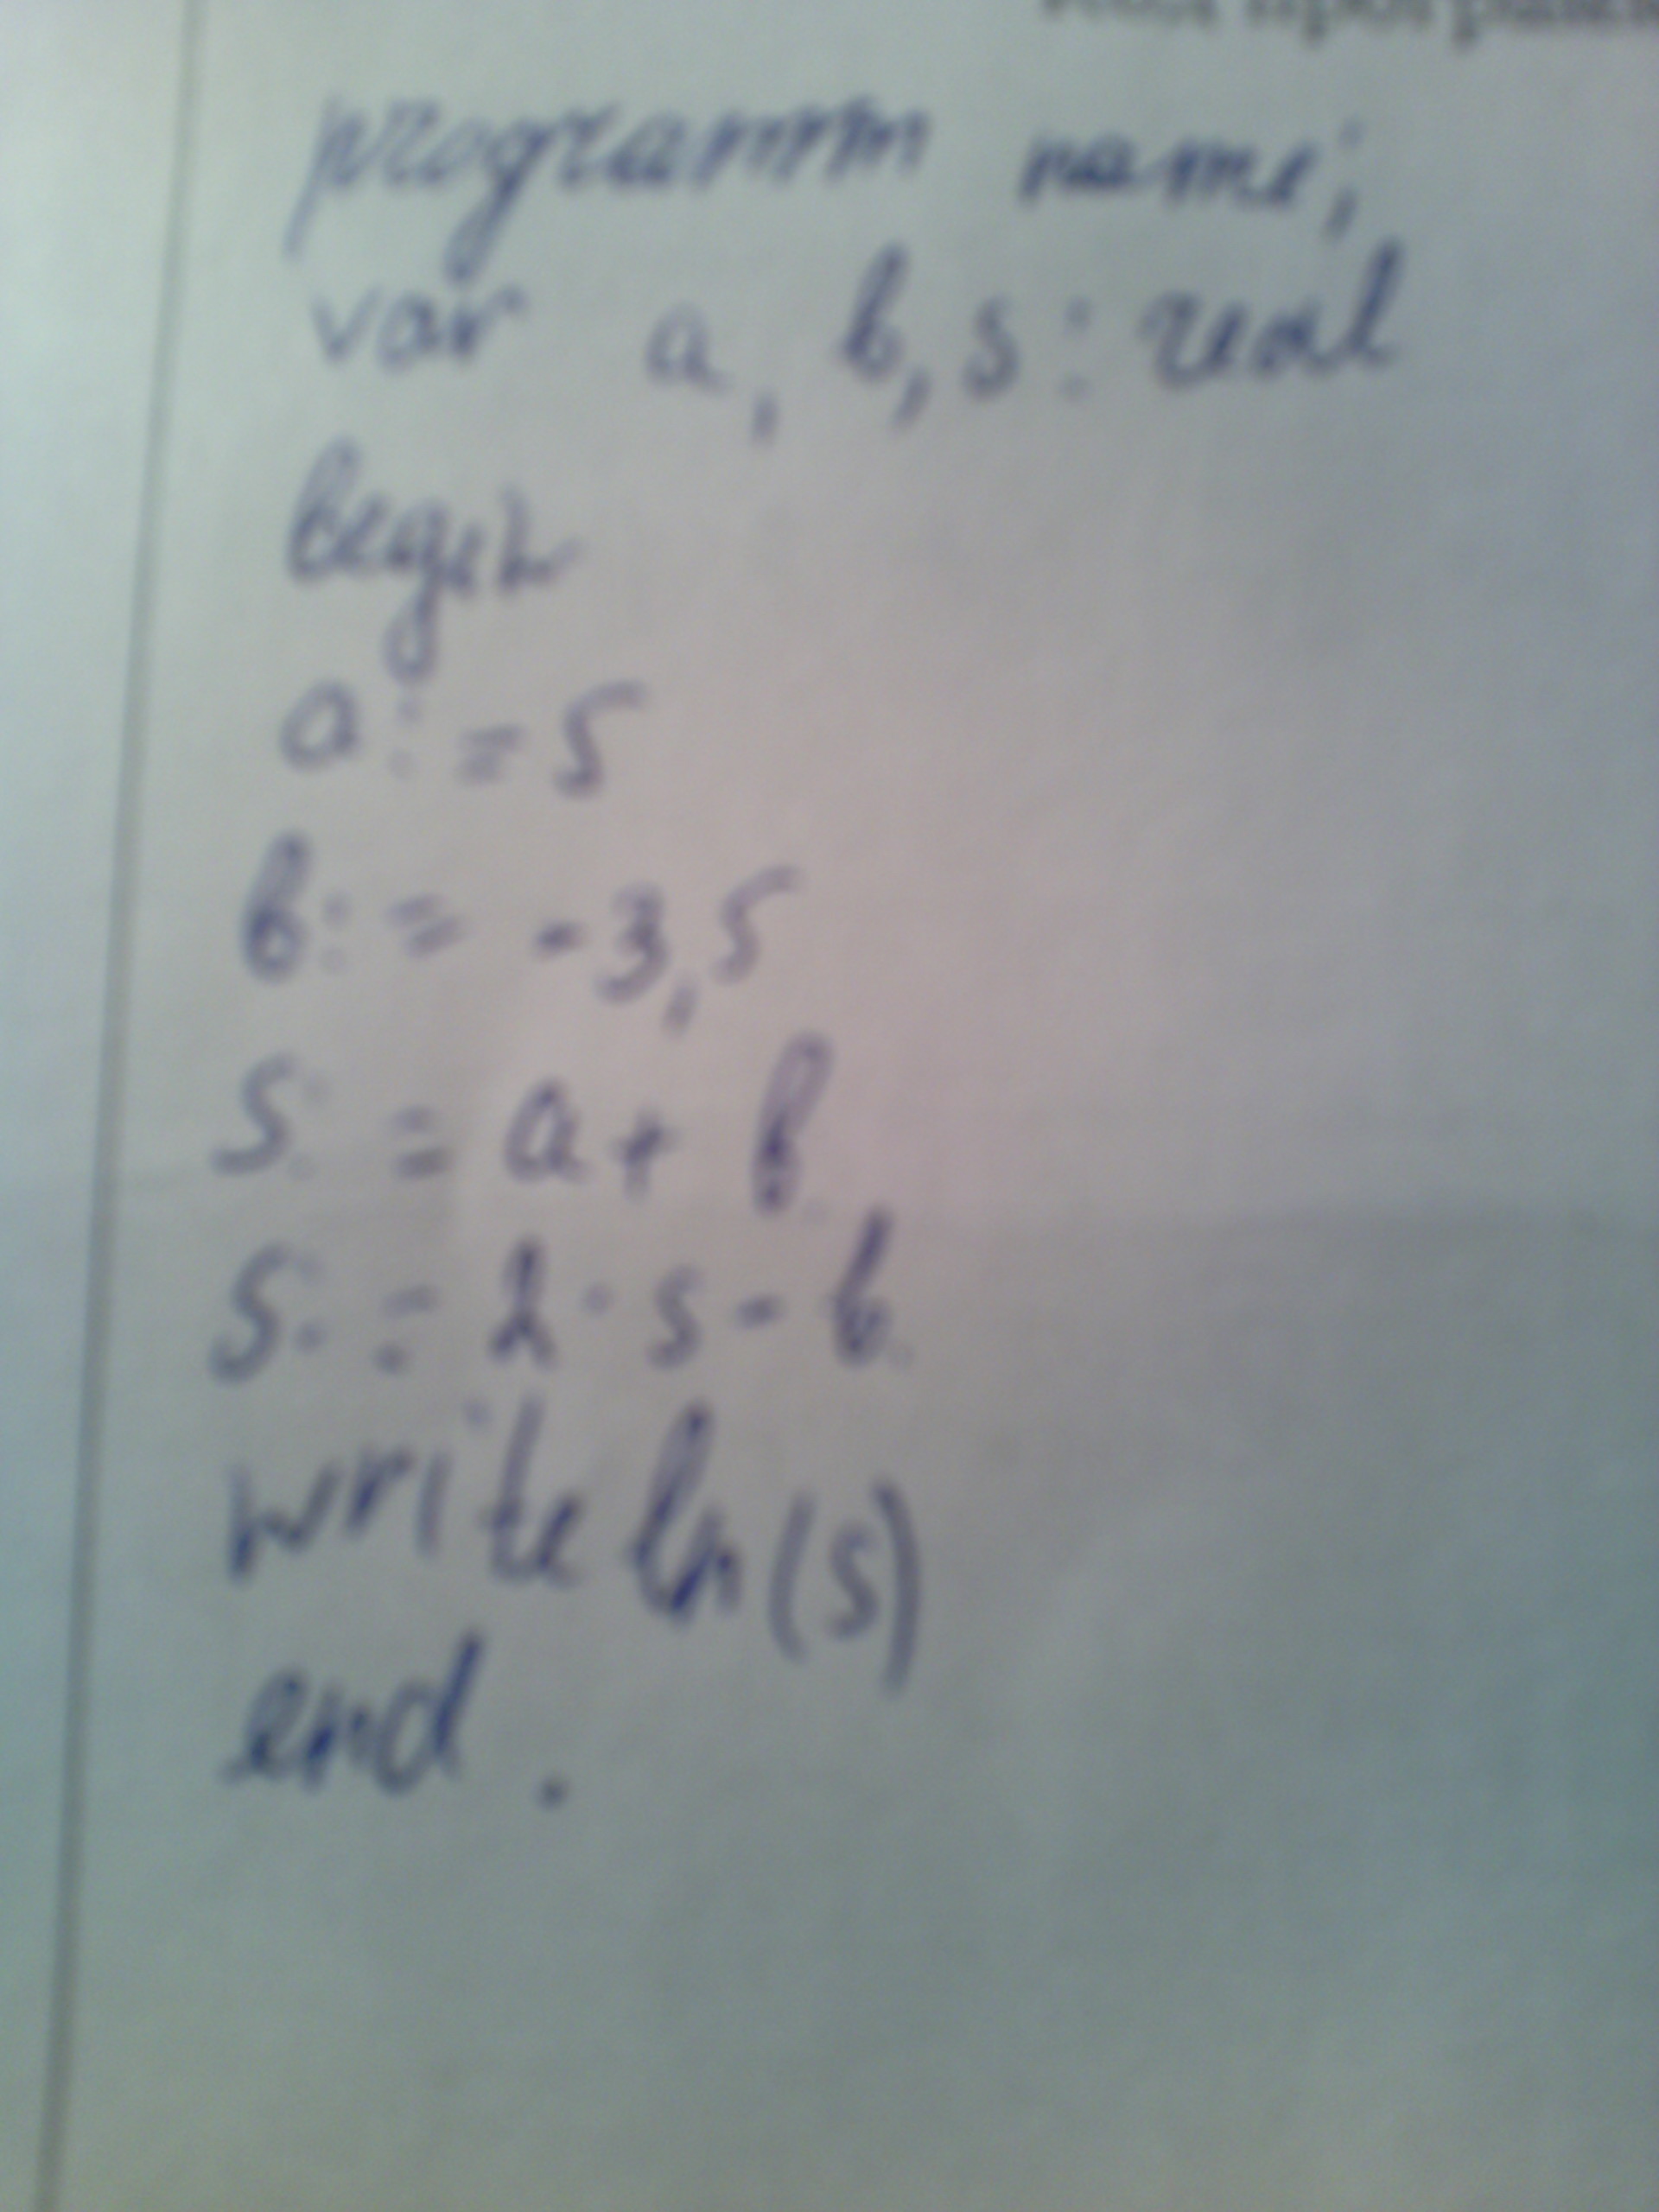 programm name;
var a, b, s: real
begin
a := 5
b := -3,5
s := a + b
s := 2 · s - b
writeln(s)
end.